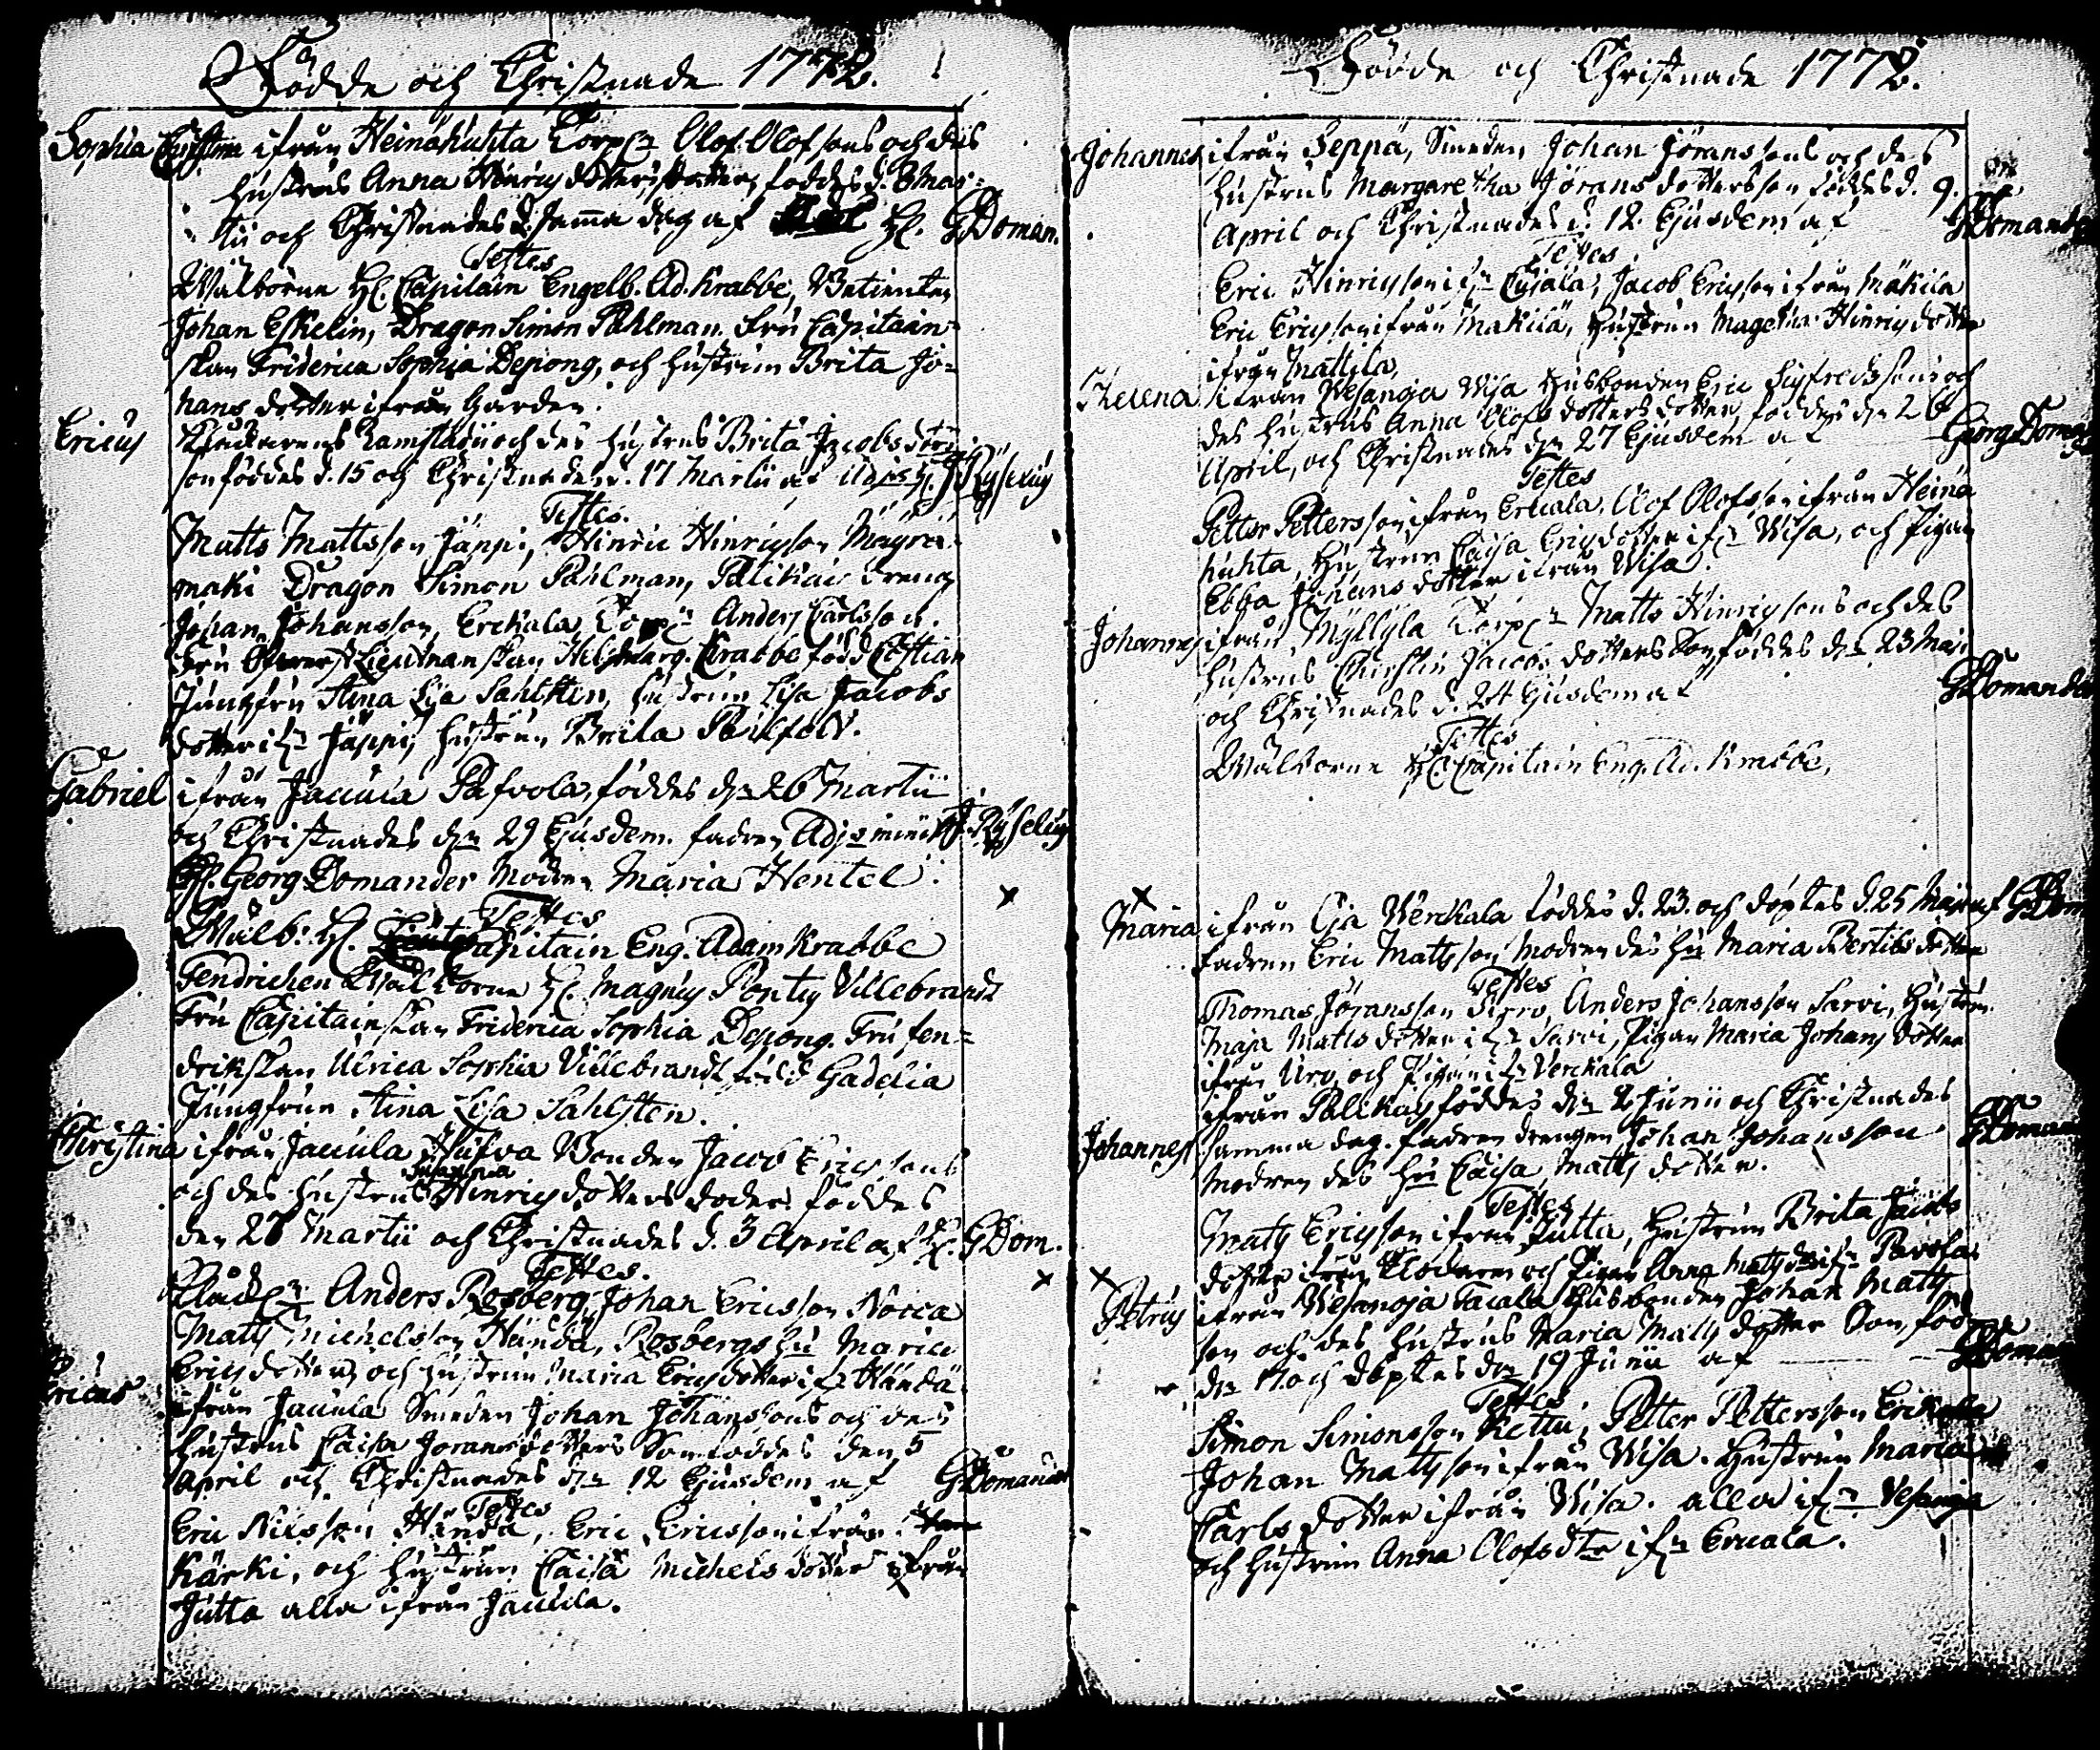 Födde och Christnade 1772.
Sophia Christina ifrån Heinähuhta Corp:n Olof Olofsons och des
hustrus Anna Hinrichsdotters dotter, föddes d. 8 Mar-
tii och Christnades d. samma dag af H. GDoman.
Testes
Wälborne H. Capitain Engelb. Ad. Krabbe, Betienten
Johan Eskelin, Dragon Simon Påhlman. Fru Capitain-
skan Friderica Sophia Depong, och hustrun Brita Jo-
hans dotter ifrån Gården.
Ericus Ramstadii och des hustrus Brita Jacobs dotters
son föddes d. 15 och Christnades d. 17 Martii af Adj. H. J Ryselius
Testes.
Matts Mattsson Jäppi, Hinric Hinricsson Mäyrä-
mäki Dragon Simon Påhlman, Palikais dreng
Johan Johansson, Erckala Corp:n Anders Carlsson.
Fru Öfwerst Lieutnanskan Hel. Marg. Krabbe född Æstian
Jungfru Stina Lisa Sahlsten, hustrun Lisa Jacobs
dotter if:n Jäppi, hustrun Brita
Gabriel ifrån Jackula Påfvola, föddes d:n 26 Martii
och Christnades d:n 29 Ejusdem. fadren Adj. min: H. Ryselius
H. Georg Domander modren Maria Hentel.
Testes
Wälb: H. Capitain Eng. Adam Krabbe
Fendrichen Wälborne H. Magnus Pontus Villebrandt
Fru Capitainskan Friderica Sophia Depong. Fru fen-
drikskan Ulrica Sophia Villebrandt född Gadelia
Jungfrun Stina Lisa Sahlsten.
Christina ifrån Jackula Hufva Bonden Jacob Ericssons
och des hustrus Susanna Hinrichsdotters dotter föddes
den 27 Martii och Christnades d. 3 April af H. GDom.
Testes.
Anders Rosberg, Johan Ericsson Nocca
Matts Michelsson Händä, Rosbergs hu Maria
Ericsdotter, och hustrun Maria Ericsdotter if:n Händä
Ericus ifrån Jackula Smeden Johan Johanssons och des
hustrus Caisa Joransdotters Son föddes den 5
April och Christnades d:n 12 Ejusdem af GDomander
Testes
Eric Nilsson Händä, Eric Ericsson ifrån
Kärki, och hustrun Caisa Michels dotter ifrån
Jutta alla ifrån Jackula.
Födde och Christnade 1772.
Johannes ifrån Seppä, Smeden Johan Jöranssons och des
hustrus Margaretha Jörans dotters son föddes d. 9.
April och Christnades d. 12 Ejusdem af GDomander
Testes
Eric Hinricsson if:n Jacob Ericsson ifrån Mäkilä
Eric Ericsson ifrån Mäkilä, hustrun Magetha Hinrichsdotter
ifrån Mattila,
Helena ifrån Wesanoja Wisa Husbonden Eric Sigfredssons och
des hustrus Anna Olofs dotters dotter, föddes d:n 26
April, och Christnades d:n 27 Ejusdem af Georg Domand
Testes
Petter Pettersson ifrån Erckala, Olof Olofsson ifrån Heinä
huhta, hustrun Caisa Ericsdotter if:n Wisa, och Pigan
Ebba Johans dotter ifrån Wisa.
Johannes ifrån Myllylä Corp:n Matts Hinricssons och des
hustrus Christin Jacobs dotters Son föddes d:n 23 Maji
och Christnades d. 24 Ejusdem af GDomander
Testes
Wälborne H. Capitain Eng. Ad. Krabbe,
Maria ifrån Erckala föddes d. 23. och döptes d. 25 Maji af GDom
fadren Eric Mattsson modren des hu Maria Bertilsdotter
Testes
Thomas Jöransson Sirro, Anders Johansson Sarvi, Hustrun
Maja Matts dotter if:n Sarvi, Pigan Maria Johans dotter
ifrån Uro, och Pigan if:n Verckala
ifrån Palikas föddes d:n 2 Junii och Christnades
Johannes samma dag. fadren drengen Johan Johansson. GDoman
modren des hu Caisa Matts dotter.
Testes
Matts Ericsson ifrån Jutta, Hustrun Brita Jacobs
dotter ifrån och Pigan Anna Matts dotter if:n Pavola
Petrus ifrån Wesanoja Tacala Husbonden Johan Matts
son och des hustrus Maria Matts dotter Son, föddes
d:n 17. och döptes d:n 19 Junii af GDoman
Testes
Simon Simonsson Kettu, Petter Pettersson Erckala
Johan Mattsson ifrån Wisa. Hustrun Maria
Carls dotter ifrån Wisa. alla if:n Vesanoja
och hustrun Anna Olofsdtr if:n Ercala.